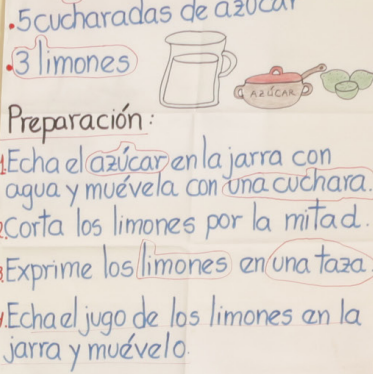 .5 cucharadas de azúcar
.3 limones
AZÚCAR
Preparación:
1 Echa el azúcar en la jarra con
agua y muévela con una cuchara.
2. Corta los limones por la mitad.
3 Exprime los limones en una taza.
4. Echa el jugo de los limones en la
jarra y muévelo.